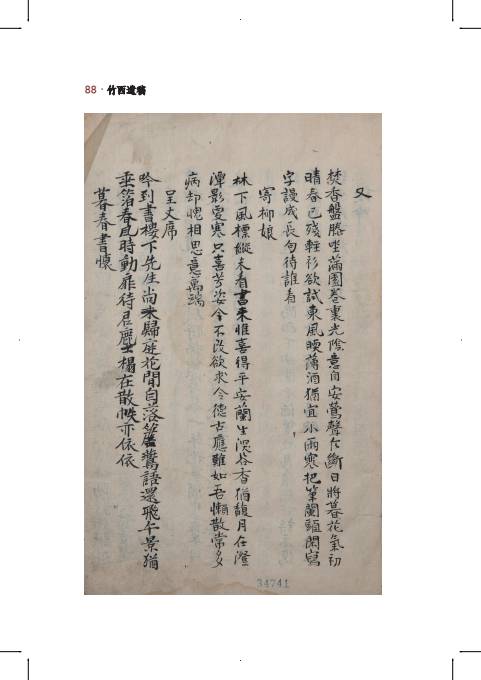 88 · 竹西遺稿
又
焚香盤膝坐蒲團卷裏光陰意自安鶯聲乍斷日將暮花氣初
晴春已殘輕衫欲試東風暖薄酒猶宜小雨寒把筆闌題閑寫
字謾成長句待誰看
寄柳娘
林下風標縱未看書來惟喜得平安蘭生深谷香猶馥月在澄
潭影更寒只喜芳姿今不改欲求令德古應難如吾懶散常多
病却愧相思意萬端
呈丈席
吟到書樓下先生尚未歸庭花閒自落簷鶯語還飛午景猶
垂箔春風時動扉待君塵土榻在散帙亦依依
暮春書懷
34741